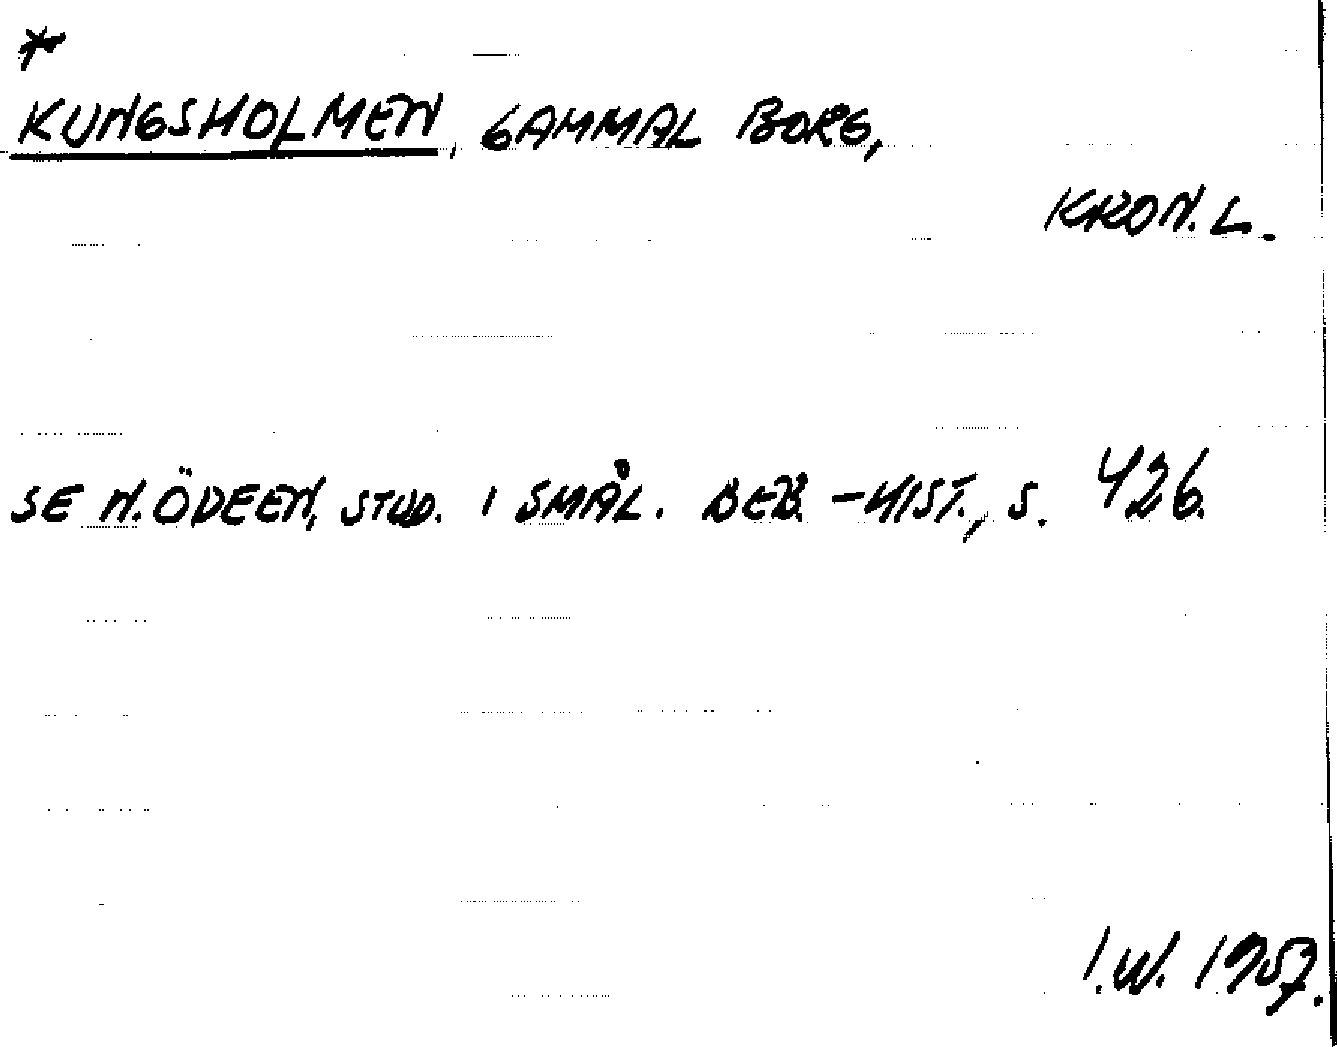 *
KUNGSHOLMEN, GAMMAL BORG,
KRON. L.
SE N. ÖDEEN, STUD. I SMÅL. BEB.-HIST., S. 426.
I.W. 1957.